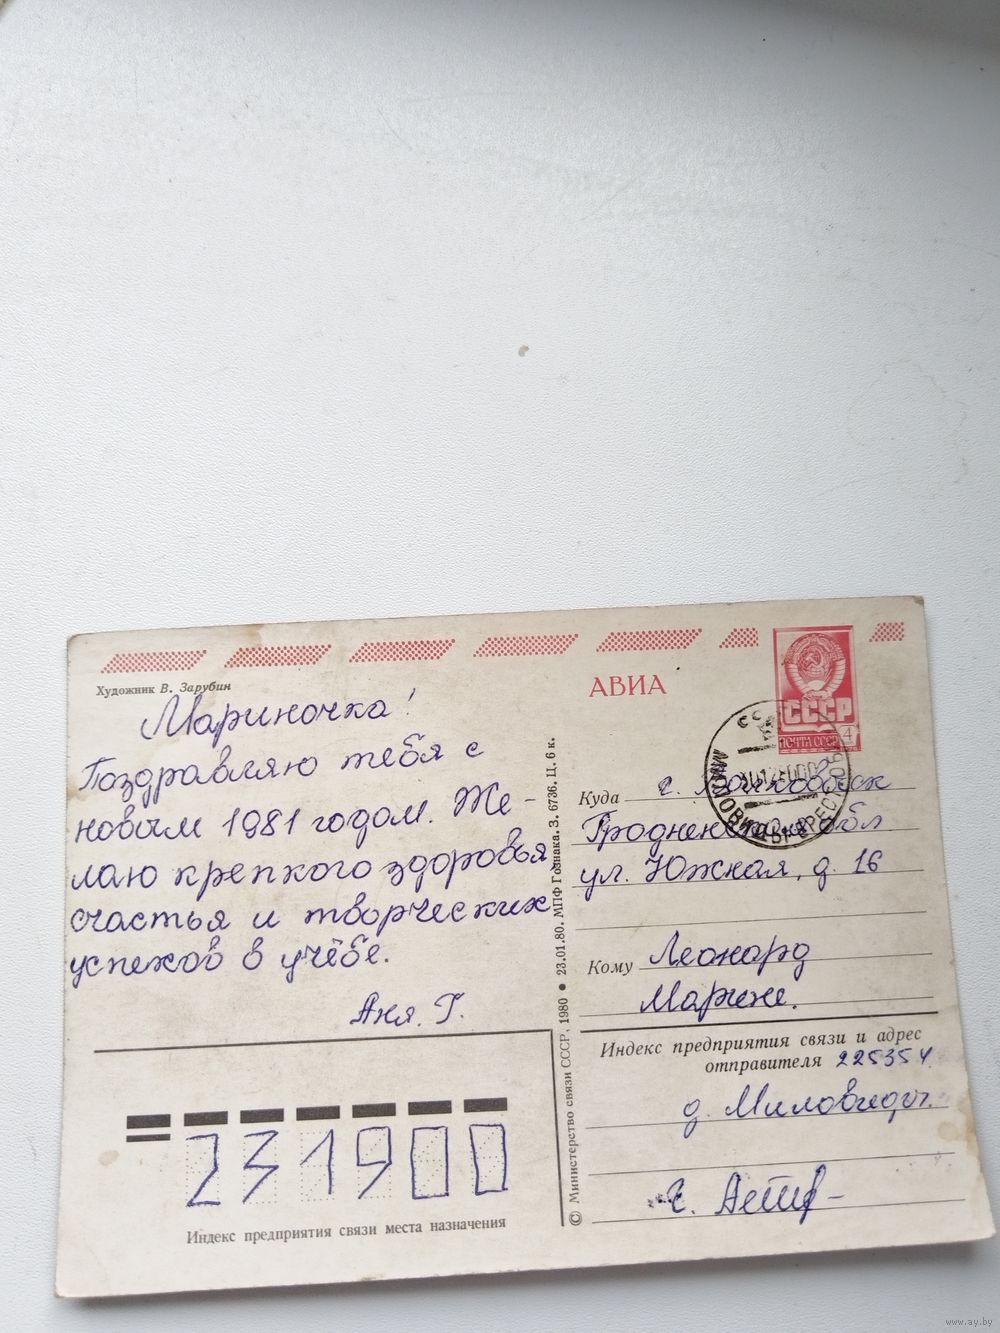 Художник В. Зарубин
Мариночка!
Поздравляю тебя с
новым 1981 годом. Же-
лаю крепкого здоровья
счастья и творческих
успехов в учёбе.
Аня. Г.
231900
Индекс предприятия связи места назначения
© Министерство связи СССР, 1980 ● 23.01.80. МПФ Гознака. З. 6736. Ц. 6 к.
АВИА
СССР
ПОЧТА СССР 4
Куда г.
Гродненская обл
ул. Южная, д. 16
Кому Леонард
Марине.
Индекс предприятия связи и адрес
отправителя 225354
д. Миловиды.
www.ay.by